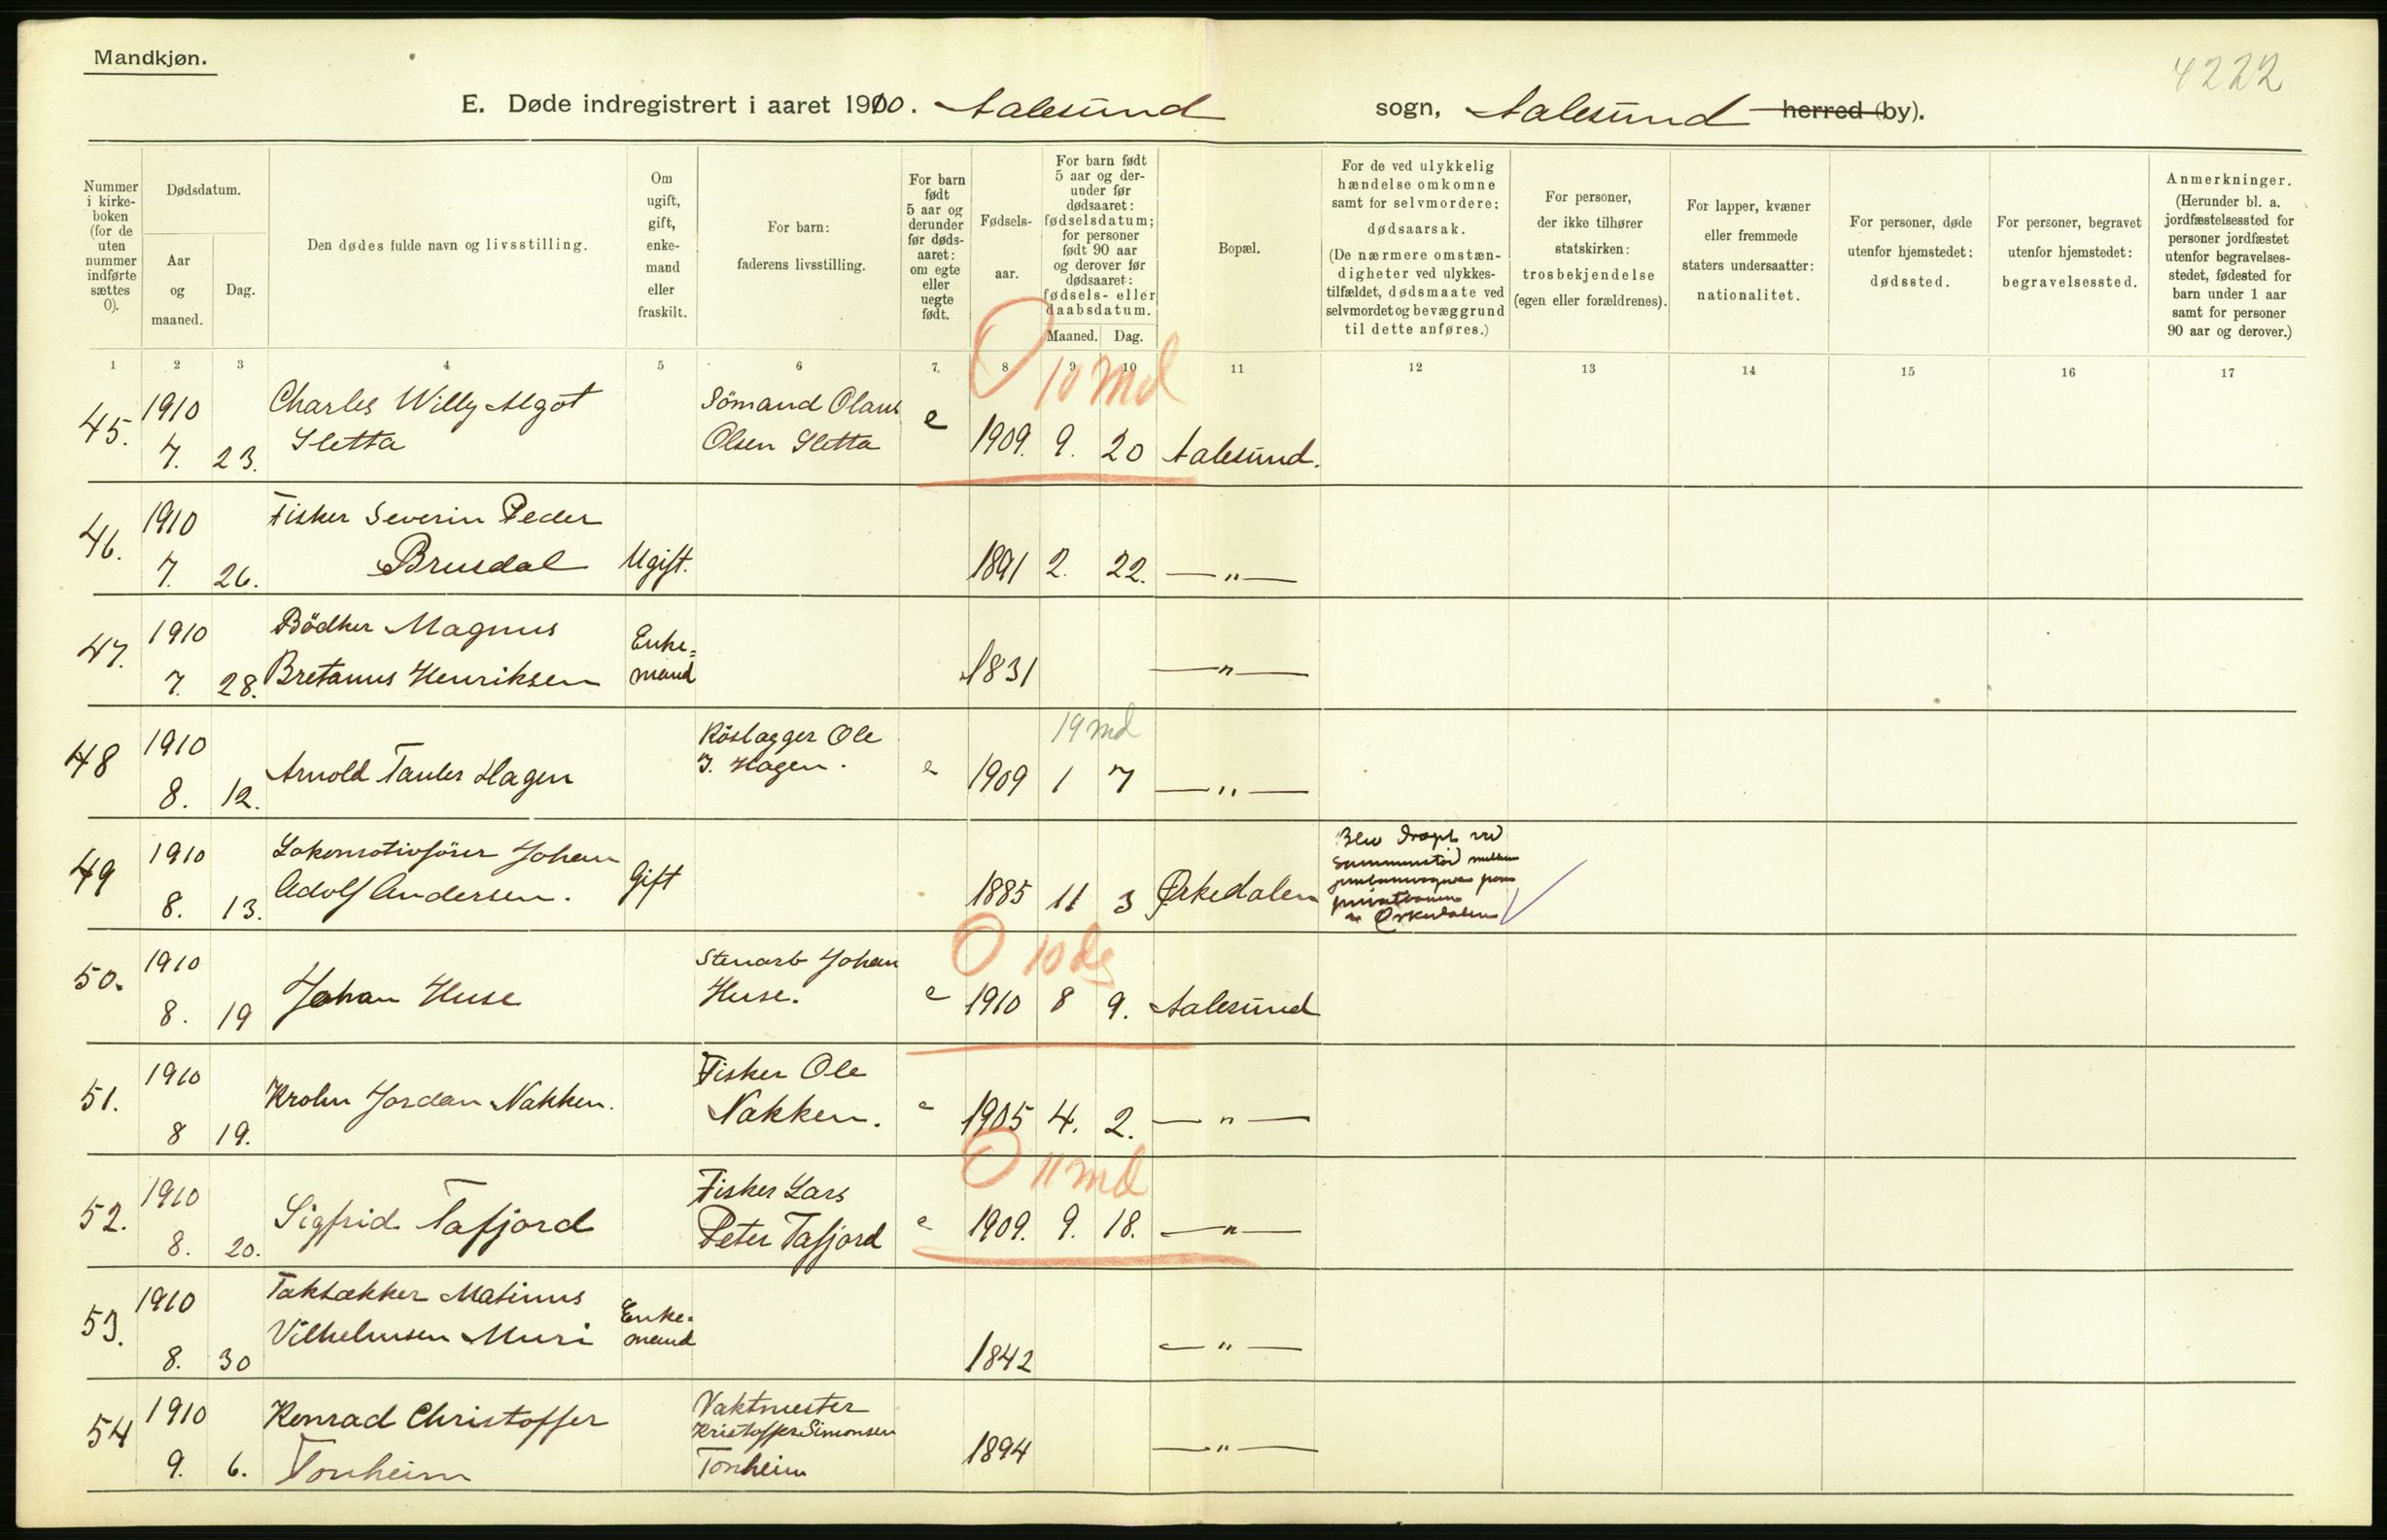 Mandkjøn.
4222
E. Døde indregistrert i aaret 1910. Aalesund sogn, Aalesund herred (by).
Nummer i kirke- boken (for de uten nummer indførte sættes 0).
Dødsdatum.
Aar og maaned.
Dag.
Den dødes fulde navn og livsstilling.
Om ugift, gift, enke- mand eller fraskilt.
For barn: faderens livsstilling.
For barn født 5 aar og derunder før døds- aaret: om egte eller uegte født.
Fødsels- aar.
For barn født 5 aar og der- under før dødsaaret: fødselsdatum; for personer født 90 aar og derover før dødsaaret: fødsels- eller daabsdatum.
Maaned. Dag.
Bopæl.
For de ved ulykkelig hændelse omkomne samt for selvmordere: dødsaarsak. (De nærmere omstæn- digheter ved ulykkes- tilfældet, dødsmaate ved selvmordet og bevæggrund til dette anføres.)
For personer, der ikke tilhører statskirken: trosbekjendelse (egen eller forældrenes).
For lapper, kvæner eller fremmede staters undersaatter: nationalitet.
For personer, døde utenfor hjemstedet: dødssted.
For personer, begravet utenfor hjemstedet: begravelsessted.
Anmerkninger. (Herunder bl. a. jordfæstelsessted for personer jordfæstet utenfor begravelses- stedet, fødested for barn under 1 aar samt for personer 90 aar og derover.)
1 2 3 4 5 6 7. 8 9 10 11 12 13 14 15 16 17
0 10 md
1910 Charles Willy Algot Sömand Olaus
45. 7. 23. Sletta Olsen Sletta e 1909. 9. 20 Aalesund.
1910 Fisker Severin Peder
46. 7. 26. Brusdal Ugift. 1891 2. 22. —"—
1910 Bödker Magnus Enke=
47. 7. 28. Bretanus Henriksen mand 1831 —"—
19 md
1910 Röslagger Ole
48 8. 12. Arnold Tanler Hagen J. Hagen. e 1909 1 7 —"—
1910 Lokomotivfører Johan
49 8. 13. Adolf Andersen. Gift 1885 11 3 Ørkedalen
Blev dræpt ved
Sammenstöd mellem
paa
privatbanen
Orkedalen
0 10 dg
1910 Stenarb Johan
50. 8. 19 Johan Huse Huse. e 1910 8 9. Aalesund
1910 Fisker Ole
51. 8 19. Krohn Jordan Nakken. Nakken. e 1905 4. 2. —"—
0 11 md
1910 Fisker Lars
52. 8. 20. Sigfrid Tafjord Peter Tafjord e 1909. 9. 18. —"—
1910 Taktækker Matinus Enke-
53. 8. 30 Vilhelmsen Muri mand 1842 —"—
1910 Konrad Christoffer Vaktmester
Kristoffer Simonsen
54 9. 6. Tonheim Tonheim 1894 —"—